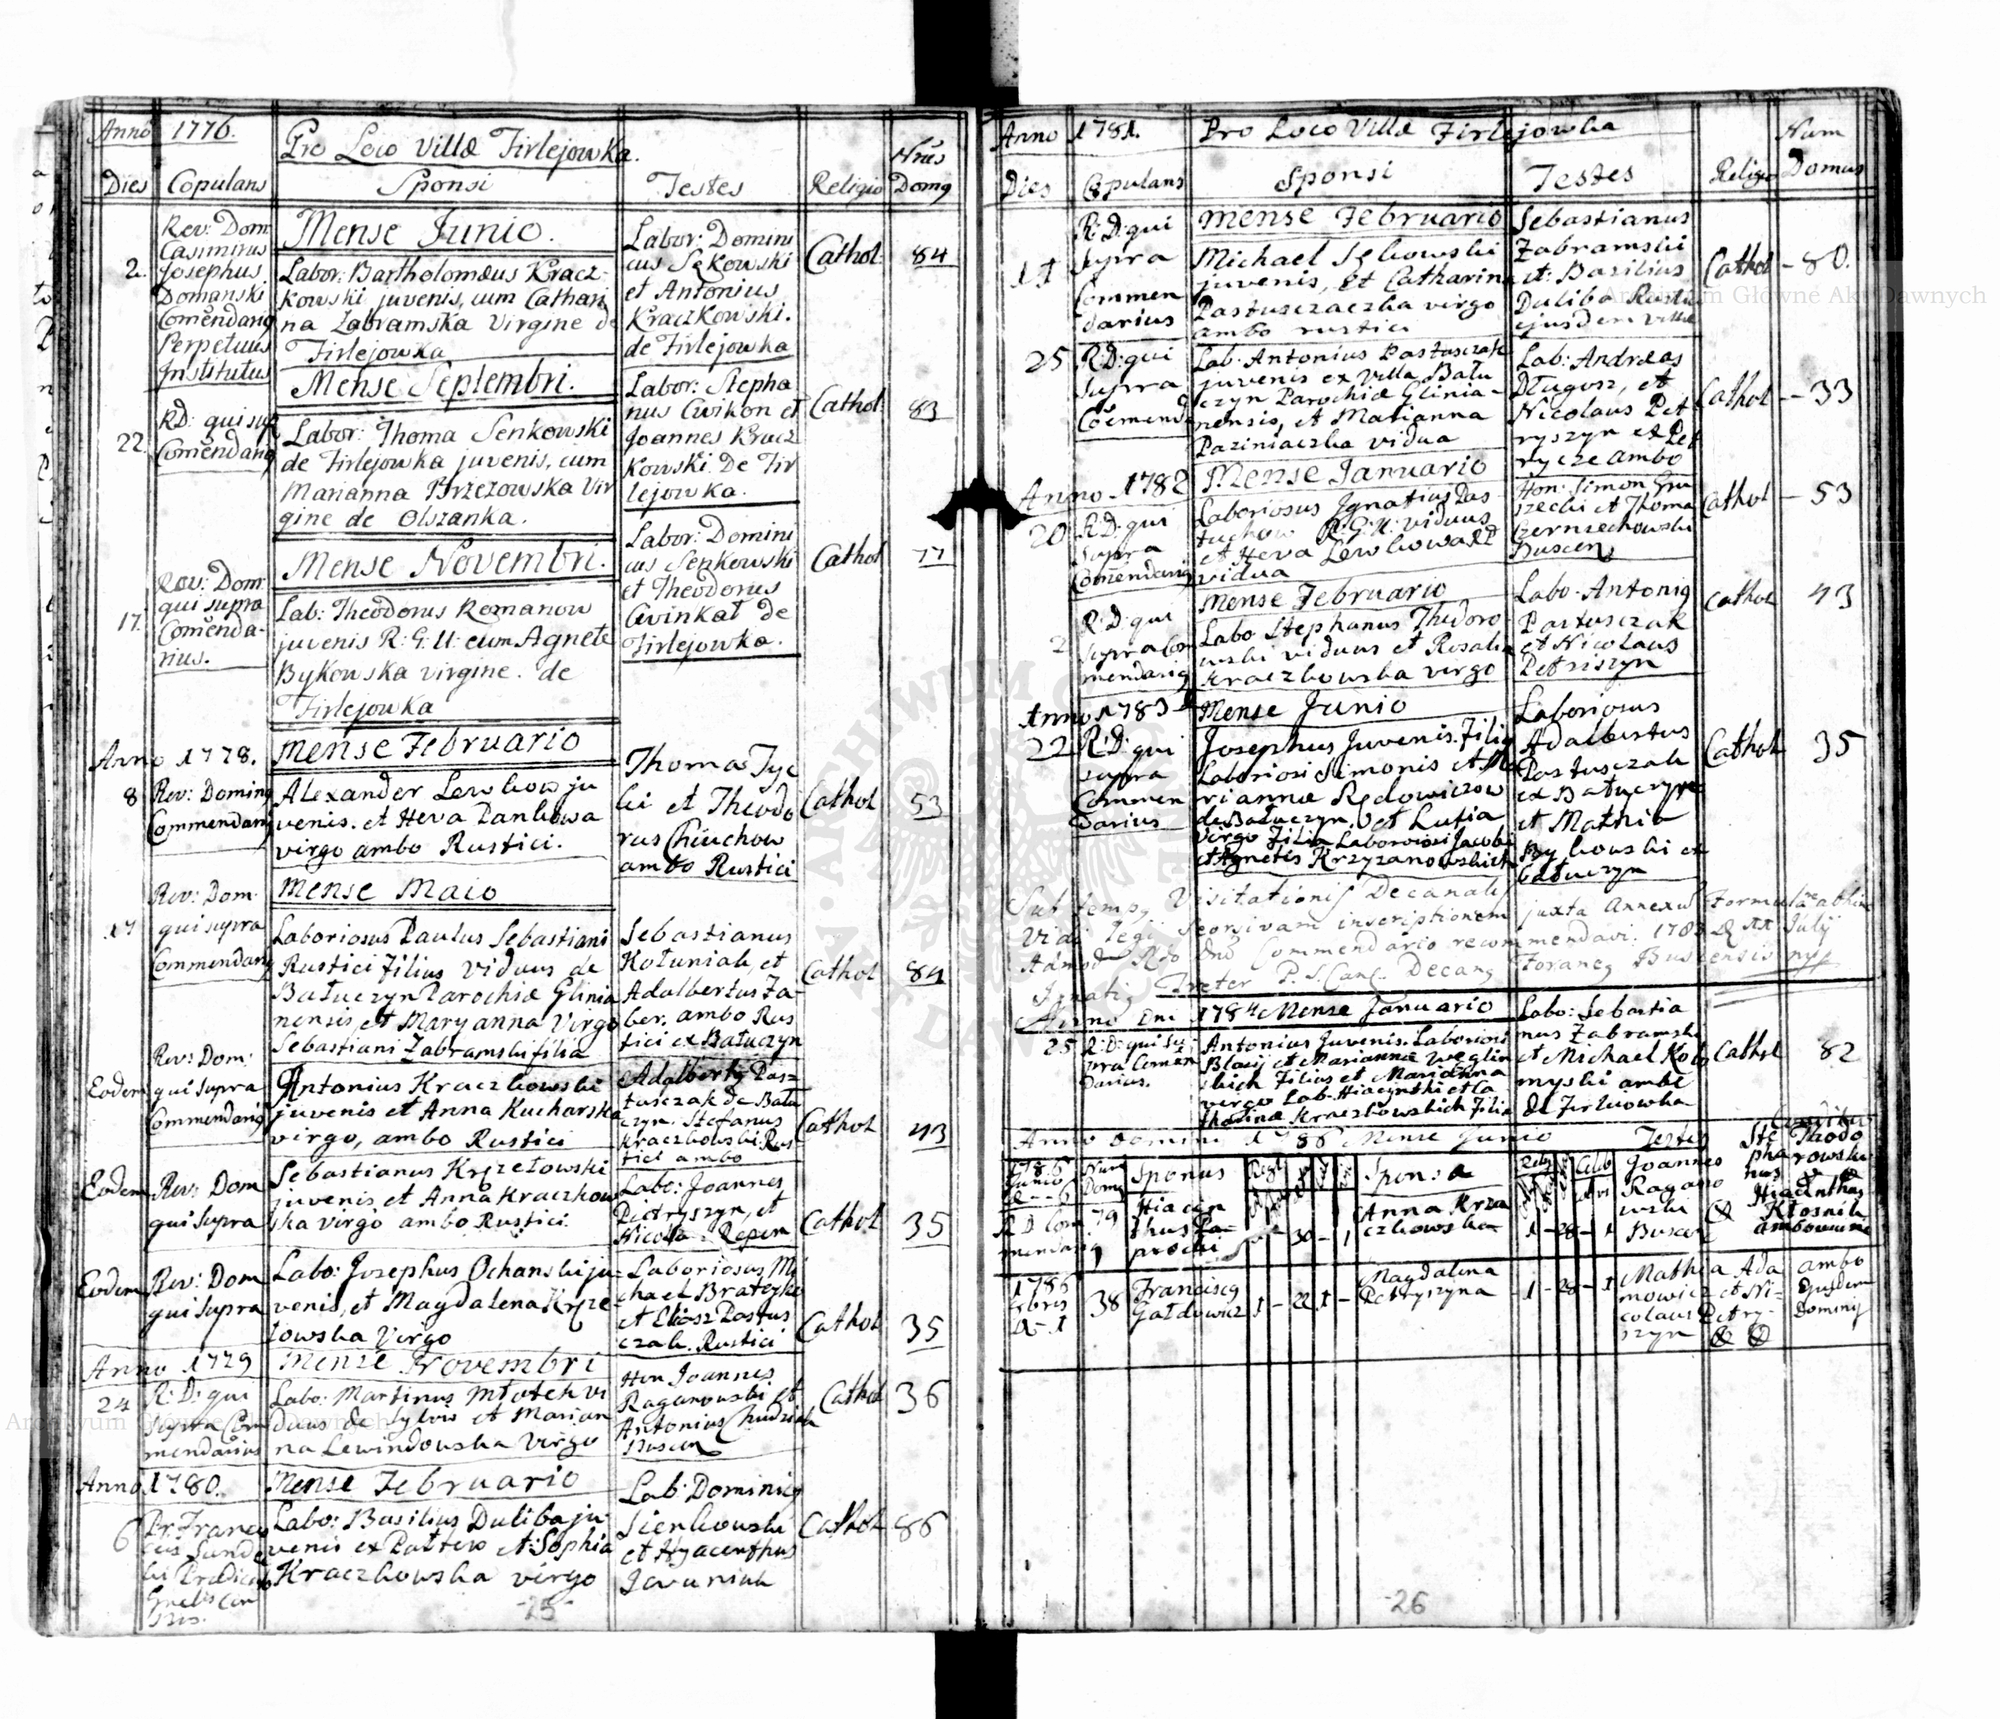 Anno 1776.
Pro Loco Villæ Firlejowka.
Dies Copulans Sponsi Testes Religio Nrus Domg
Mense Junio.
2.
Rev: Dom
Casimirus
Josephus
Domanski
Comendarig
Perpetuus
Institutus
Labor: Bartholomæus Kracz-
kowski juvenis, cum Cathari
na Zabramska Virgine de
Firlejowka
Labor: Domini
cus Sękowski
et Antonius
Kraczkowski.
de Firlejowka
Cathol: 84
Mense Septembri.
22.
RD: qui sup
Comendarig
Labor: Thoma Senkowski
de Firlejowka juvenis, cum
Marianna Brzezowska Vir
gine de Olszanka.
Labor: Stepha
nus Cwikon et
Joannes Kracz
kowski. De Fir
lejowka.
Cathol: 83
Mense Novembri.
17.
Rev: Dom:
qui supra
Comenda-
rius.
Lab: Theodorus Romanow
juvenis R: G: U: cum Agnete
Bykowska virgine. de
Firlejowka
Labor: Domini
cus Senkowski
et Theodorus
Cwinkat de
Firlejowka.
Cathol 77
Anno 1778. Mense Februario
8
Rev: Doming
Commendarig
Alexander Lewkow ju
venis. et Heva Pankowa
virgo ambo Rustici.
Thoma Tyc
ki et Theodo
rus Chiuchow
ambo Rustici
Cathol 53
Mense Maio
17
Rev: Dom.
qui supra
Commendarig
Laboriosus Paulus Sebastiani
Rustici Filius Viduus de
Batuczyn Parochiæ Glinia
nensis, et Maryanna Virgo
Sebastiani Zabramski filia
Sebastianus
Kotuniak, et
Adalbertus Za-
ber. ambo Rus
tici ex Batuczyn
Cathol 84
Eodem
Rev: Dom:
qui supra
Commendarig
Antonius Kraczkowski
juvenis et Anna Kucharska
virgo, ambo Rustici
Adalbertg Pas-
tusczak de Batu
czyn. Stefanus
Kraczkowski Rus
tici ambo
Cathol 43
Eodem
Rev: Dom
qui supra
Sebastianus Krzetowski
juvenis, et Anna Kraczkow
ska virgo ambo Rustici.
Labo: Joannes
Pietryszyn, et
Nicola Repen
Cathol 35
Eodem
Rev: Dom
qui supra
Labo: Josephus Ochanski ju-
venis, et Magdalena Krze-
towska Virgo
Laboriosus Mi
chael Bratyki
et Eliasz Pastus
czak. Rustici
Cathol 35
Anno 1779 Mense Novembri
24
R: D: qui
supra Com
mendarius
Labo: Martinus Mtotek vi
duus de Sytow et Marian
na Lewindowska Virgo
Hon Joannes
Raganowski et
Antonius Chudziak
Buscen
Cathol 36
Anno 1780. Mense Februario
6
Pr. Francis
cus Sande
ki Prædica
Labo: Basilius Duliba ju-
venis ex Pottew et Sophia
Kraczkowska virgo
Lab: Dominicg
Sienkowski
et Hyacenthus
Iwuniak
Cathol 86
-25-
Anno 1781. Pro Loco Villæ Firlejowka
Dies Copulans Sponsi Testes Religio Num Domus
Mense Februario
11
R: D: qui
Supra
Commen
darius
Michael Sękowski
juvenis, et Catharina
Pastusczaczka virgo
ambo rustici
Sebastianus
Zabramski
et: Basilius
Duliba Rusti
ejusdem villæ
Cathol - 80.
25
R: D: qui
supra
Coemend
Lab: Antonius Pastusczak
juvenis ex Villa Batu
czyn Parochiæ Glinia-
nensis, et Marianna
Paziniaczka vidua
Lab: Andræas
Dtugosz, et
Nicolaus Pet
ryszyn ex Pet
rycze ambo
Cathol - 33
Anno 1782 Mense Januario
20
R: D: qui
supra
Comendarig
Laboriosus Ignatius Pas
tuchow R: G: U: viduus
et Heva Lewkowa
vidua
Hon: Simon Gru
szecki et Thoma
Czernzechowski
Buscen
Cathol - 53
Mense Februario
2
R: D: qui
supra Com
mendarig
Labo Stephanus Theodoro
wski viduus et Rosalia
Kraczkowska virgo
Labo. Antonig
Partusczak
et Nicolaus
Petriszyn
Cathol 43
Anno 1783 Mense Junio
22
R: D: qui
supra
Commen
darius
Josephus Juvenis. Filig
Laboriosi Simonis et Ma
riannæ Rędowiczow
de Batuczyn. et Lufia
Virgo Filia Laboriosi Jacobi
et Agnetis Krzyzanowskich
Laboriosus
Adalbertus
Pastusczak
ex Batuczyn
et Mathia
Bykowski ex
Batuczyn
Cathol 35
Sub tempg Visitationis Decanalis juxta Annexus Formulare
Vidi Legi Seorsivam inscriptionem
Commendario recommendavi. 1783 Julij
Ignatig Decang Foraneg Buscensis
Anno Dni 1784 Mense Januario
25
R: D: qui su:
pra Comen
darius.
Antonius Juvenis. Laboriosi
Blasij et Mariannæ Węglin
skich Filius et Marianna
virgo Lab. Hiacinthi et Ca
tharinæ Kraczkowskich Filia
Labo: Sebastia
nus Zabramski
et Michael Kolo
myski ambi
de Firleiowka
Cathol 82
Anno Domini 1786 Mense Junio
Testes
1786
Junio
Num
Domg
Sponsus
Sponsa
R D Com
mendarig
79
Hiacin
thus Pa-
procki
1 - 30 - 1
Anna Krza
czkowska
1 - 28 - 1
Joannes
Ragano
wski
Buscen
Ste
pha
nus
Thodo
rowski
Hiacinthus
Ktosnik
1786
38
Franciscg
Gatdowicz
1 - 22 1 -
Magdalena
Petryszyna
1 - 20 - 1
Mathia Ada
mowicz et Ni-
colaus Petry-
szyn
ambo
Ejusdem
Dominij
-26